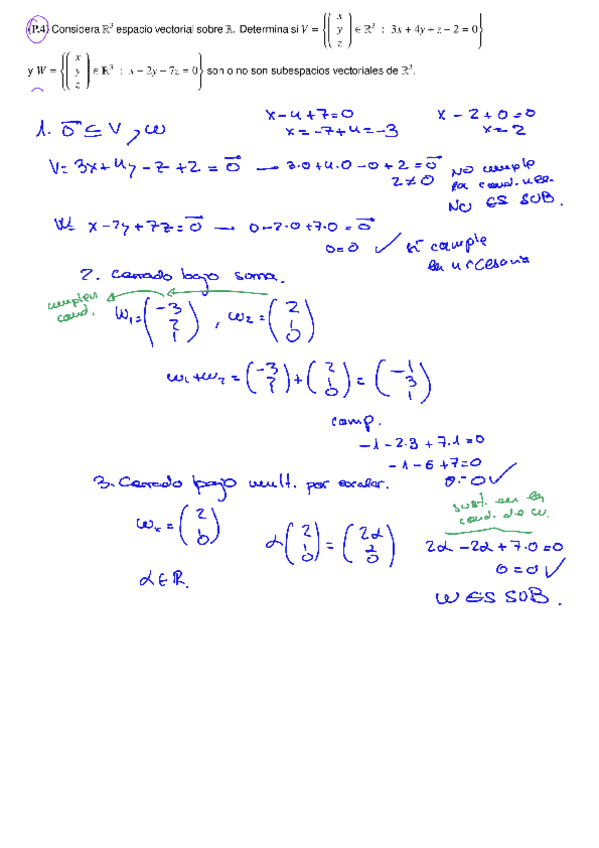 (P.4) Considera ℝ³ espacio vectorial sobre ℝ. Determina si V = {(x y z) ∈ ℝ³ : 3x + 4y + z − 2 = 0}
y W = {(x y z) ∈ ℝ³ : x − 2y − 7z = 0} son o no son subespacios vectoriales de ℝ³.
x-4+7=0 x - 2 + 0 = 0
1. 0⃗ ⊆ V, W x = -7+4 = -3 x = 2
V= 3x+4y-z+2 = 0⃗ — 3·0+4·0-0+2 = 0⃗ NO cumple
2≠0 la cond. nec.
NO ES SUB.
W= x-2y+7z = 0⃗ — 0-2·0+7·0 = 0⃗
0=0 ✓ sí cumple
la necesaria
2. Cerrado bajo suma.
cumplen cond.
W₁ = (-3 2 1), W₂ = (2 1 0)
W₁+W₂ = (-3 2 1) + (2 1 0) = (-1 3 1)
comp.
-1-2·3+7·1=0
-1-6+7=0
0=0 ✓
3. Cerrado bajo mult. por escalar.
sust. en la
cond. de W.
Wₓ = (2 1 0) α(2 1 0) = (2α α 0) 2α-2α+7·0=0
0=0 ✓
α∈ℝ.
W ES SUB.